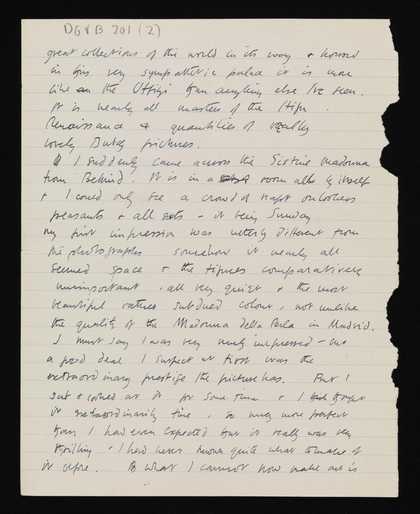 DG & B 201 (2)
great collections of the world in its way & housed
in this very sympathetic palace it is more
like the Uffizi than anything else I've seen.
It is nearly all masters of the High
Renaissance & quantities of really
lovely Dutch pictures.
I suddenly came across the Sistine Madonna
from Behind! It is in a room all by itself
& I could only see a crowd of rapt onlookers
peasants & all sorts - it being Sunday
My first impression was utterly different from
the photographs somehow it nearly all
seemed space & the figures comparatively
unimportant, all very quiet & the most
beautiful rather subdued colour, not unlike
the quality of the Madonna della Perla in Madrid.
I must say I was very much impressed -
a good deal I suspect at first was the
extraordinary prestige the picture has. But I
sat & looked at it for some time & I thought
it extraordinarily fine, so much more perfect
than I had even expected that it really was very
thrilling. I had never known quite what to make of
it before. What I cannot now make out is